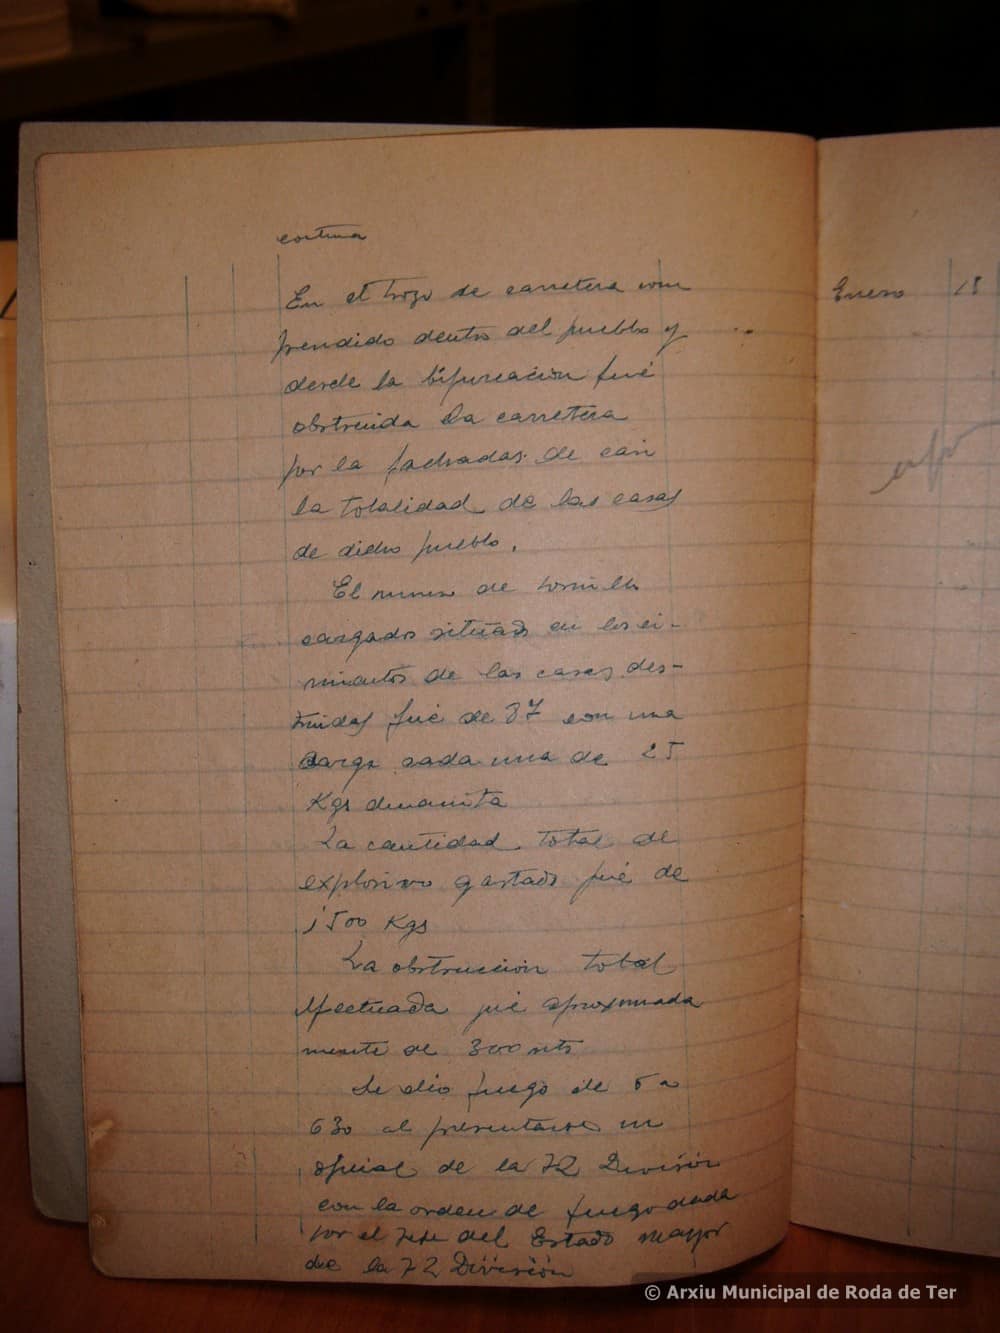 cortina
En el trozo de carretera com
prendido dentro del pueblo y
desde la bifurcación fué
obstruida la carretera
por la fachadas de casi
la totalidad de las casas
de dicho pueblo.
El numero de hornillos
cargados situados en los ci-
mientos de las casas des-
truidas fué de 37 con una
carga cada una de 25
Kgs dinamita
La cantidad total de
explosivo gastado fué de
1500 Kgs
La obstrucción total
efectuada fué aproximada
mente de 300 mts
Se dió fuego de 6 a
630 al presentarse un
oficial de la 72 División
con la orden de fuego dada
por el Jefe del Estado mayor
de la 72 División
Enero 15
© Arxiu Municipal de Roda de Ter